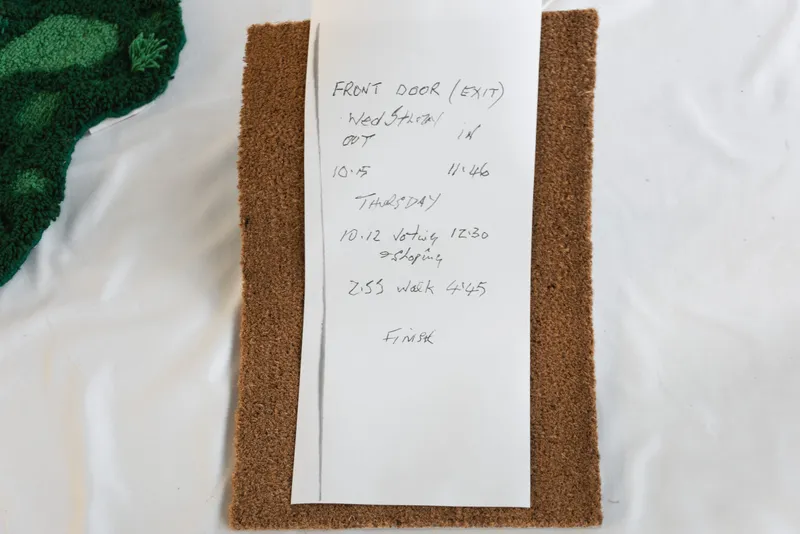 FRONT DOOR (EXIT)
Wed 5th May
OUT IN
10.15 11.46
THURSDAY
10.12 Voting 12.30
& Shoping
2.55 Walk 4.45
FINISH